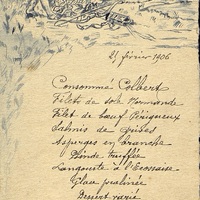 21 février 1906
Consommé Colbert
Filets de sole Normande
Filet de bœuf Périgueux
Salmis de
Asperges en branche
Dinde truffée
Langouste à l'Ecossaise
Glace pralinée
Dessert varié